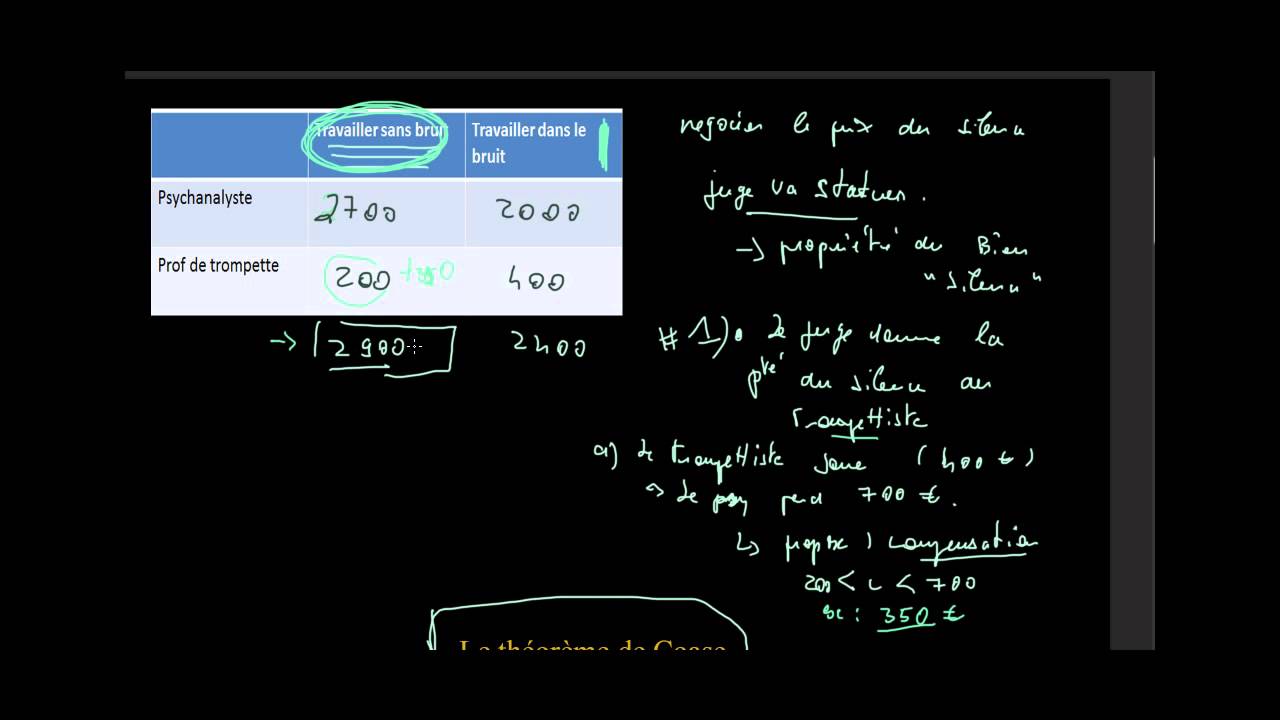 Travailler sans bruit
Travailler dans le
bruit
Psychanalyste
2700
2000
Prof de trompette
200
400
→ 2900
2400
negocier le prix du silence
juge va statuer.
→ propriété du Bien
"silence"
# 1) • Le juge donne la
pté du silence au
Trompettiste
a) Le trompettiste joue (400 €)
Le psy perd 700 €.
↳ propose 1 compensation
200 < c < 700
350 €
Le théorème de Coase